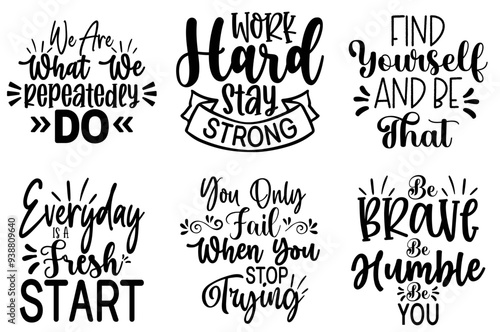 We Are
What We
Repeatedly
»DO«
WORK
Hard
Stay
STRONG
FIND
Yourself
AND BE
That
Everyday
IS A
Fresh
START
You Only
Fail
When You
STOP
Trying
Be
BRAVE
Be
Humble
Be
YOU
Adobe Stock | #938809640